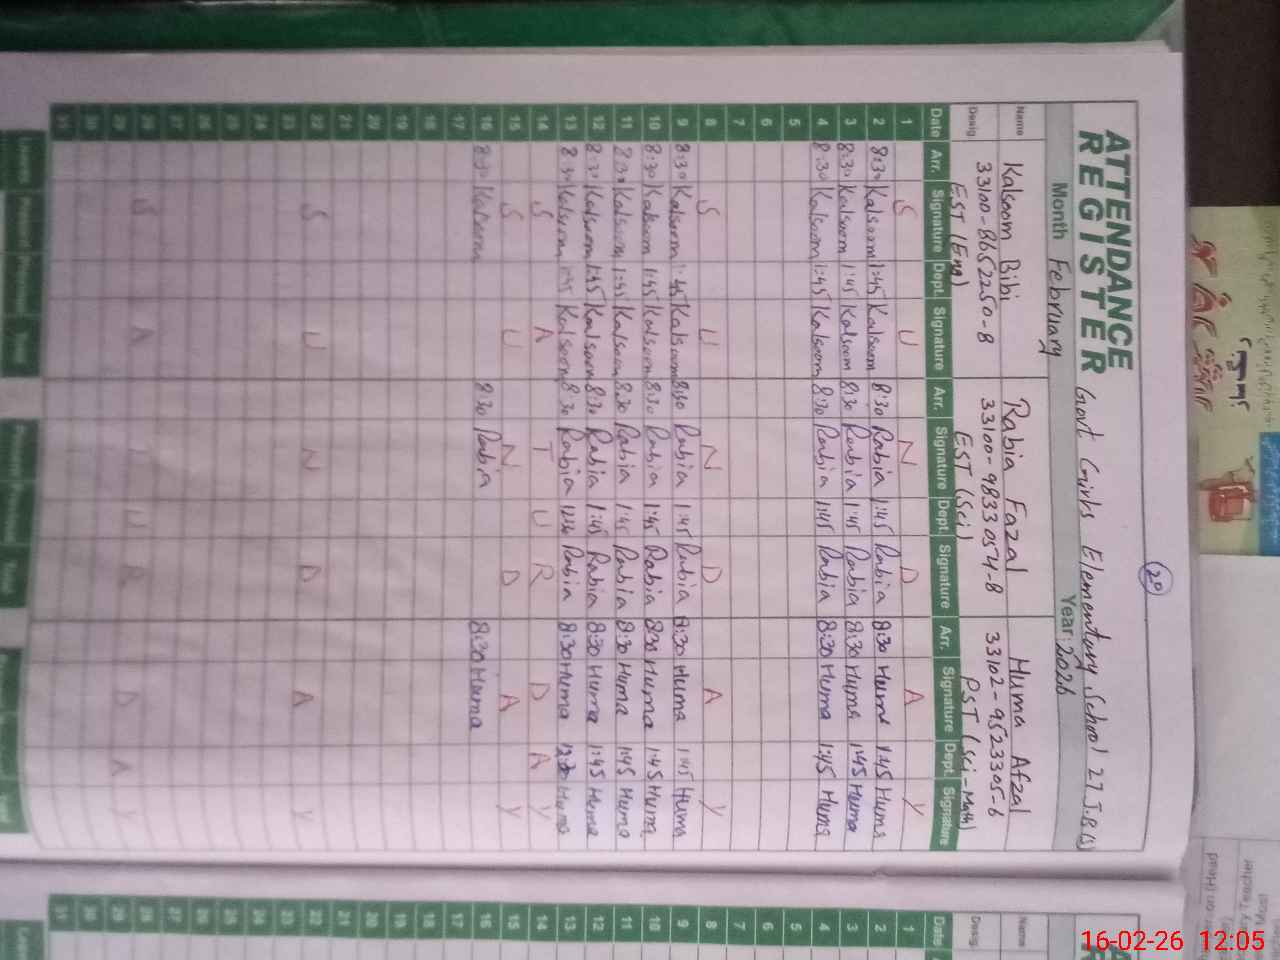 20
ATTENDANCE
REGISTER
Govt Girls Elementary School 27 J.B (s)
Month February Year: 2026
Name Kalsoom Bibi Rabia Fazal Huma Afzal
33100-8652250-8 33100-9833054-8 33102-9523305-6
Desig. EST (Eng) EST (Sci) PST (Sci-Math)
Date Arr. Signature Dept. Signature Arr. Signature Dept. Signature Arr. Signature Dept. Signature
1 S U N D A Y
2 8:30 Kalsoom 1:45 Kalsoom 8:30 Rabia 1:45 Rabia 8:30 Huma 1:45 Huma
3 8:30 Kalsoom 1:45 Kalsoom 8:30 Rabia 1:45 Rabia 8:30 Huma 1:45 Huma
4 8:30 Kalsoom 1:45 Kalsoom 8:30 Rabia 1:45 Rabia 8:30 Huma 1:45 Huma
5
6
7
8 S U N D A Y
9 8:30 Kalsoom 1:45 Kalsoom 8:30 Rabia 1:45 Rabia 8:30 Huma 1:45 Huma
10 8:30 Kalsoom 1:45 Kalsoom 8:30 Rabia 1:45 Rabia 8:30 Huma 1:45 Huma
11 8:30 Kalsoom 1:45 Kalsoom 8:30 Rabia 1:45 Rabia 8:30 Huma 1:45 Huma
12 8:30 Kalsoom 1:45 Kalsoom 8:30 Rabia 1:45 Rabia 8:30 Huma 1:45 Huma
13 8:30 Kalsoom Kalsoom 8:30 Rabia Rabia 8:30 Huma Huma
14 S A T U R D A Y
15 S U N D A Y
16 8:30 Kalsoom 8:30 Rabia 8:30 Huma
17
18
19
20
21
22 S U N D A Y
23
24
25
26
27
28
29
30
31
Date
1
2
3
4
5
6
7
8
9
10
11
12
13
14
15
16
17
18
19
20
21
22
23
24
25
26
27
28
29
30
31
Name
Desig.
16-02-26 12:05